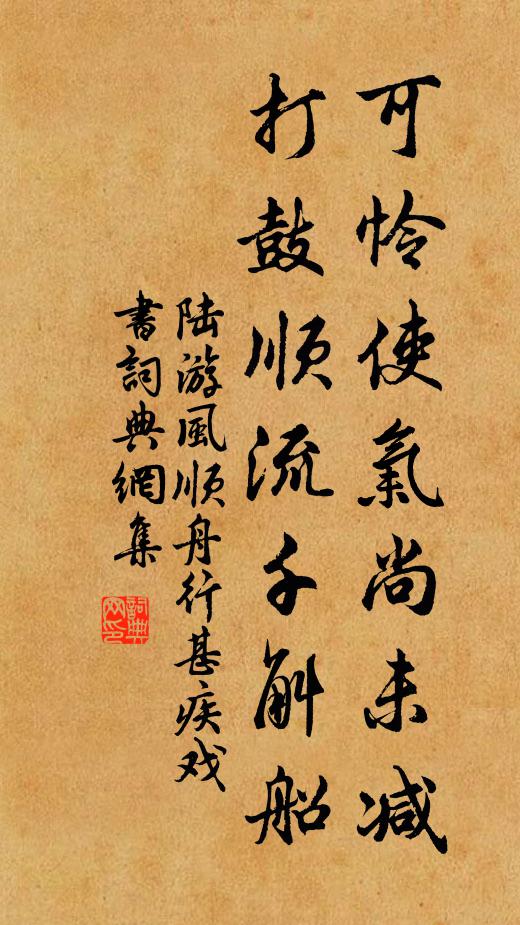 可怜使氣尚未减
打鼓順流千斛船
陆游風順舟行甚疾戏
書詞典網集
詞典網印